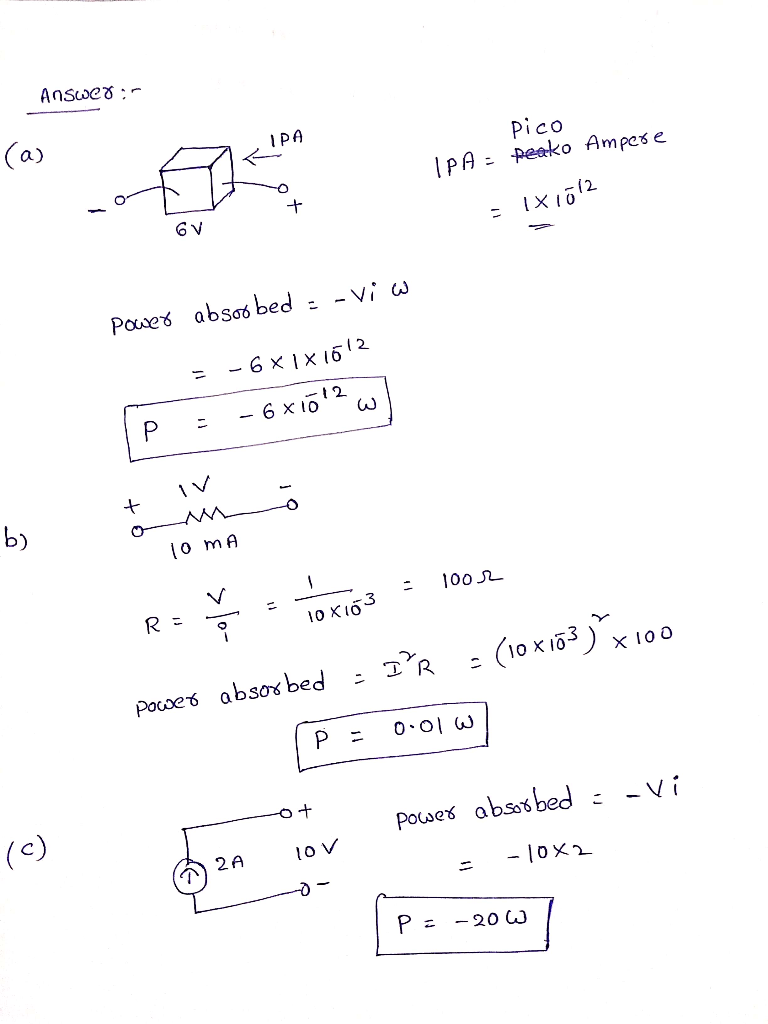 Answer :-
(a)
1PA
- +
6V
1PA = Pico Ampere
= 1×10⁻¹²
Power absorbed = -Vi W
= -6 × 1 × 10⁻¹²
P = -6 × 10⁻¹² W
b)
+ 1V -
10 mA
R = V/i = 1/(10×10⁻³) = 100Ω
power absorbed = I²R = (10×10⁻³)² × 100
P = 0.01 W
(c)
+
2A 10V
-
power absorbed = -Vi
= -10×2
P = -20W